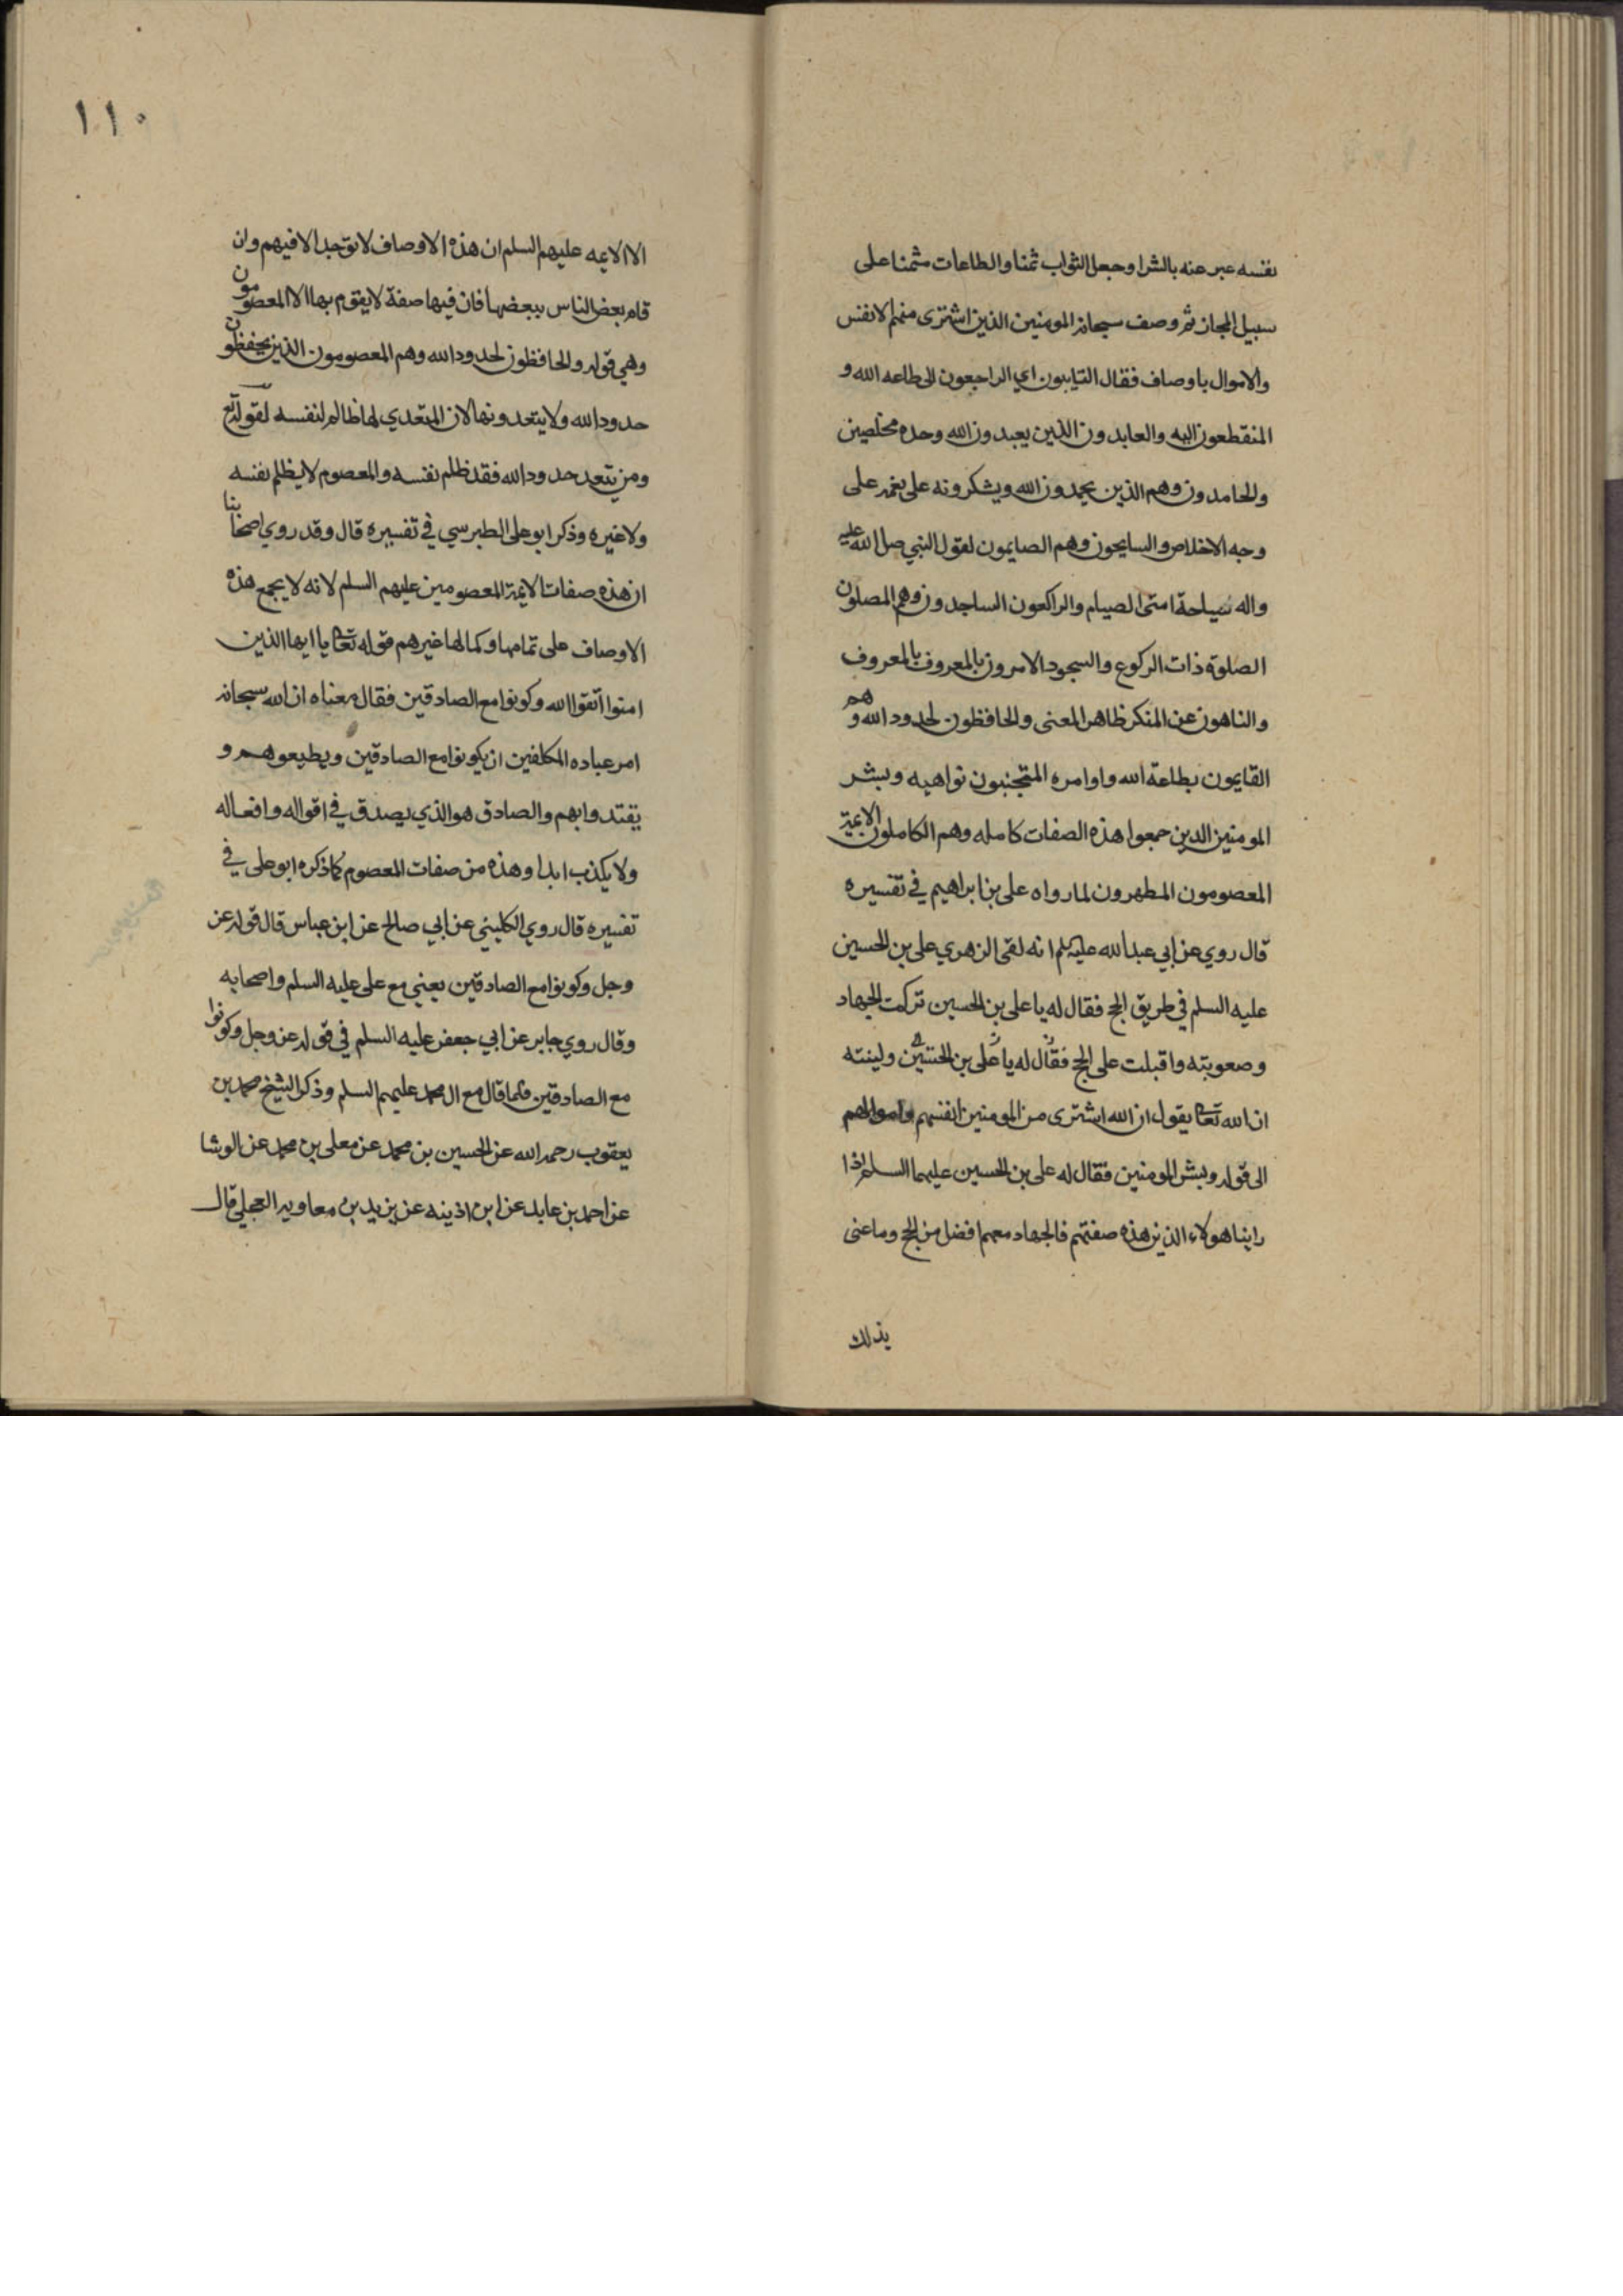 نفسه عبر عنه بالشرا وجعل الثواب ثمنا والطاعات مثمنا على
سبيل المجاز ثم وصف سبحانه المومنين الذين اشترى منهم الانفس
والاموال باوصاف فقال التايبون اي الراجعون الى طاعه الله و
المنقطعون اليه والعابدون الذين يعبدون الله وحده مخلصين
والحامدون وهم الذين يحمدون الله ويشكرونه على نعمه على
وجه الاخلاص والسايحون وهم الصايمون لقول النبي صلى الله عليه
واله سياحة امتى الصيام والراكعون الساجدون وهم المصلون
الصلوة ذات الركوع والسجود الامرون بالمعروف بالمعروف
والناهون عن المنكر ظاهر المعنى والحافظون لحدود الله وهم
القايمون بطاعة الله واوامره المتجنبون نواهيه وبشر
المومنين الدين جمعوا هذه الصفات كامله وهم الكاملون الايمة
المعصومون المطهرون لما رواه على بن ابراهيم في تفسيره
قال روي عن ابي عبد الله عليه السلم انه لقى الزهري على بن الحسين
عليه السلم في طريق الحج فقال له يا على بن الحسين تركت الجهاد
وصعوبته واقبلت على الحج فقال له يا على بن الحسين ولينته
ان الله تعالى يقول ان الله اشترى من المومنين انفسهم واموالهم
الى قوله وبشر المومنين فقال له على بن الحسين عليهما السلم اذا
راينا هولاء الذين هذه صفتهم فالجهاد معهم افضل من الحج وما عنى
بذلك
١١٠
الا الايمه عليهم السلم ان هذه الاوصاف لا توجد الا فيهم وان
قام بعض الناس ببعضها فان فيها صفة لا يقوم بها الا المعصومون
وهي قوله والحافظون لحدود الله وهم المعصومون الذين يحفظون
حدود الله ولا يتعدونها لان المتعدي لها ظالم لنفسه لقوله تع
ومن يتعد حدود الله فقد ظلم نفسه والمعصوم لا يظلم نفسه
ولا غيره وذكر ابو على الطبرسي في تفسيره قال وقد روي اصحابنا
ان هذه صفات الايمة المعصومين عليهم السلم لانه لا يجمع هذه
الاوصاف على تمامها وكمالها غيرهم قوله تعالى يا ايها الذين
امنوا اتقوا الله وكونوا مع الصادقين فقال معناه ان الله سبحانه
امر عباده المكلفين ان يكونوا مع الصادقين ويطيعوهم و
يقتدوا بهم والصادق هو الذي يصدق في اقواله وافعاله
ولا يكذب ابدا وهذه من صفات المعصوم كما ذكره ابو على في
تفسيره قال روي الكليني عن ابي صالح عن ابن عباس قال قوله عز
وجل وكونوا مع الصادقين يعني مع على عليه السلم واصحابه
وقال روي جابر عن ابي جعفر عليه السلم في قوله عز وجل وكونوا
مع الصادقين قال مع ال محمد عليهم السلم وذكر الشيخ محمد بن
يعقوب رحمه الله عن الحسين بن محمد عن معلى بن محمد عن الوشا
عن احمد بن عايد عن ابن اذينه عن بريد بن معاويه العجلي قال